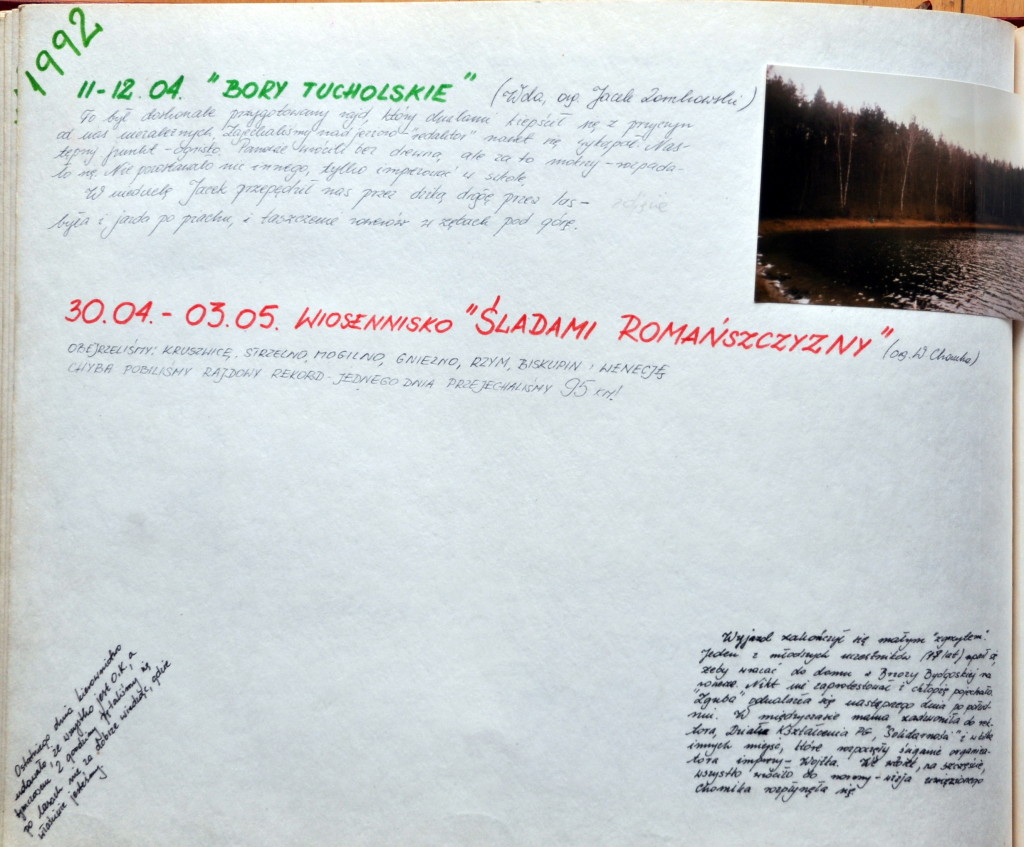 1992
11-12.04. "BORY TUCHOLSKIE" (Wda, org. Jacek Dombrowski)
To był doskonale przygotowany rajd, który działami kiepścił się z przyczyn
od nas niezależnych. Zajechaliśmy nad jezioro - "redaktor" nawet się wykąpał. Nas-
tępny punkt - ognisko. Panowie wrócili bez drewna, ale za to mokrzy - rozpada-
ło się. Nie pozostawało nic innego, tylko imprezować w szkole.
W niedzielę Jacek przepędził nas przez dziką drogę przez las -
była i jazda po piachu, i taszczenie rowerów w zębach pod górę.
zdjęcie
30.04. - 03.05. WIOSENNISKO "ŚLADAMI ROMAŃSZCZYZNY" (org. W. Chomka)
OBEJRZELIŚMY: KRUSZWICĘ, STRZELNO, MOGILNO, GNIEZNO, RZYM, BISKUPIN I WENECJĘ
CHYBA POBILIŚMY RAJDOWY REKORD - JEDNEGO DNIA PRZEJECHALIŚMY 95 KM!
Ostatniego dnia kierownictwo
udawało, że wszystko jest O.K, a
tymczasem 2 godziny kręciliśmy się
po lasach nie za dobrze wiedząc, gdzie
właściwie jesteśmy
Wyjazd zakończył się małym "zgrzytem".
Jeden z młodszych uczestników (17 lat) uparł się
żeby wracać do domu z Brzozy Bydgoskiej na
rowerze. Nikt nie zaprotestował i chłopię pojechało.
"Zguba" odnalazła się następnego dnia po połud-
niu. W międzyczasie mama zadzwoniła do
Działu Kształcenia PG, "Solidarności" i
innych miejsc, które rozpoczęły ściganie organiza-
tora imprezy - Wojtka. We wtorek, na szczęście,
wszystko wróciło do normy - wizja uwięzionego
Chomika rozpłynęła się